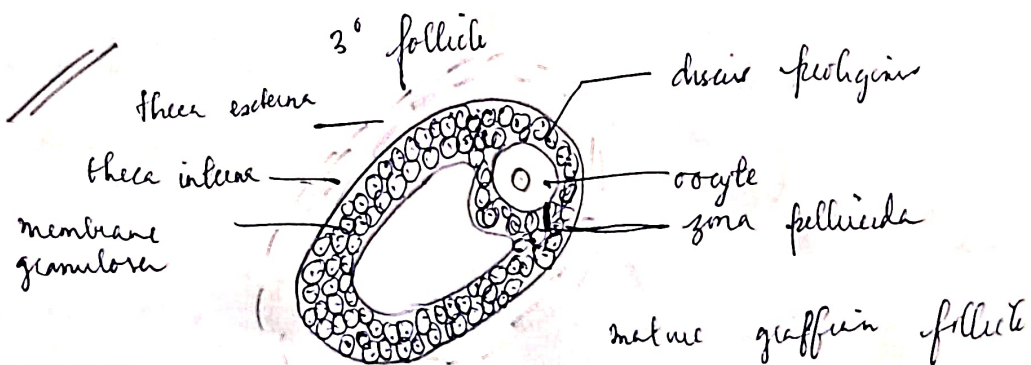 3° follicle
theca externa
theca interna
membrane
granulosa
discus proligerus
oocyte
zona pellucida
mature graffian follicle